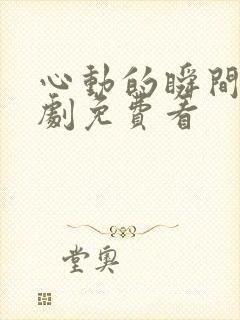 心動的瞬間
劇免費看
堂奧